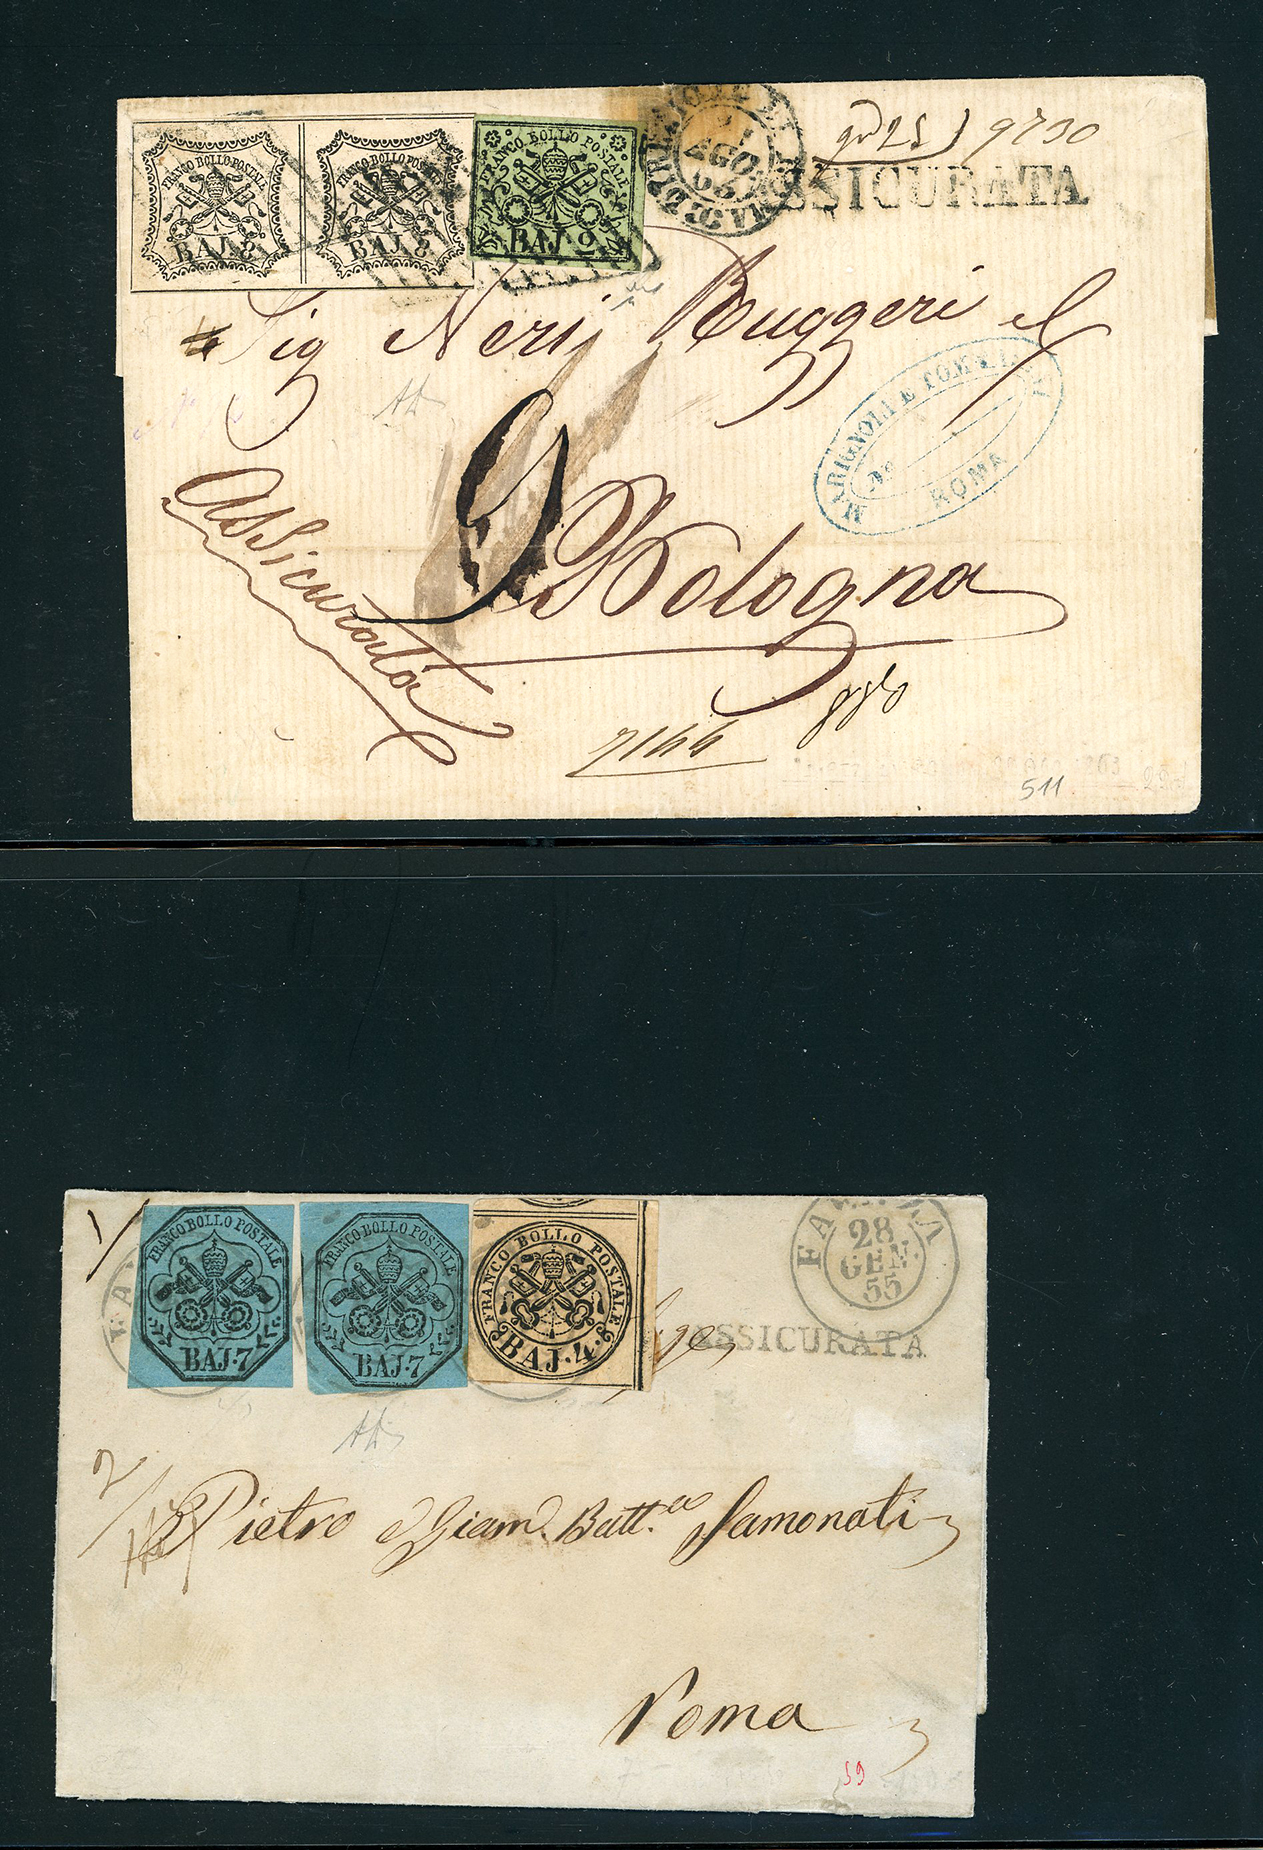 FRANCO BOLLO POSTALE
BAJ. 8
FRANCO BOLLO POSTALE
BAJ. 8
FRANCO BOLLO POSTALE
BAJ. 2
AGO
9730
ASSICURATA
Sig Neri Ruggeri
MARIGNOLI E
ROMA
Assicurata
Bologna
7166
511
1
FRANCO BOLLO POSTALE
BAJ. 7
FRANCO BOLLO POSTALE
BAJ. 7
FRANCO BOLLO POSTALE
BAJ. 4.
28
GEN.
55
ASSICURATA
2
Pietro e Giam. Batt.a Samonati
Roma
59